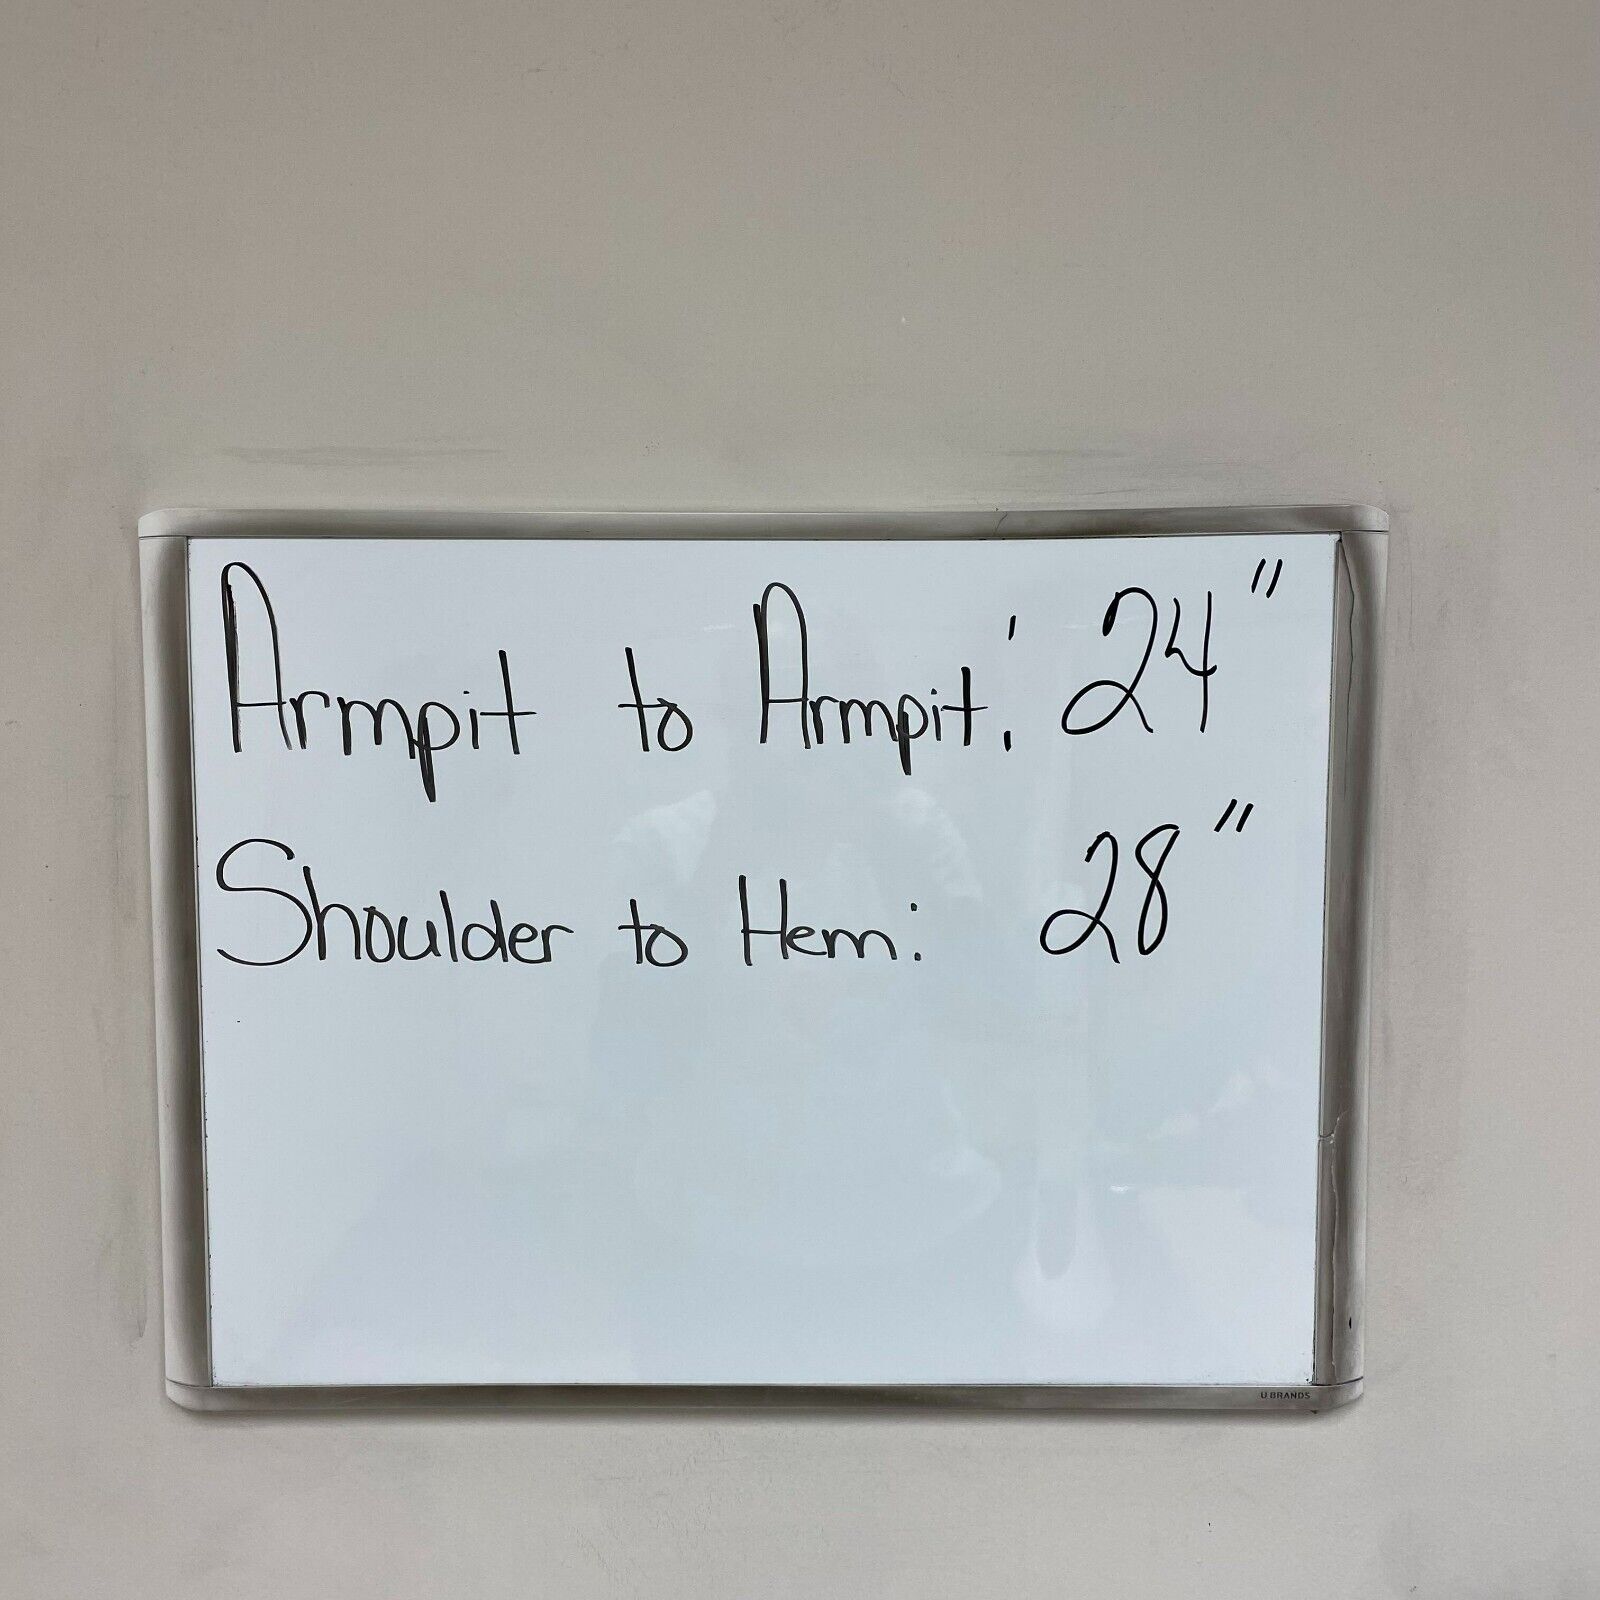 Armpit to Armpit: 24"
Shoulder to Hem: 28"
U BRANDS